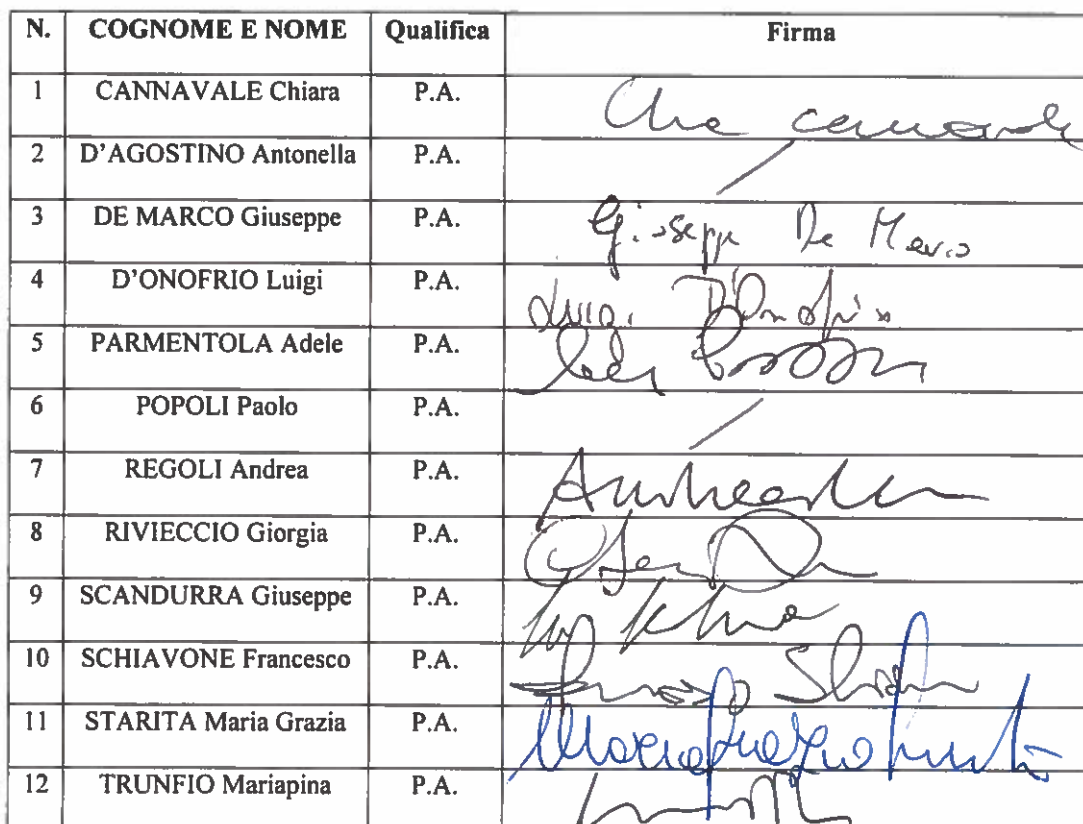 N. COGNOME E NOME Qualifica Firma
1 CANNAVALE Chiara P.A.
2 D'AGOSTINO Antonella P.A.
3 DE MARCO Giuseppe P.A. Giuseppe De Marco
4 D'ONOFRIO Luigi P.A. Luigi D'Onofrio
5 PARMENTOLA Adele P.A.
6 POPOLI Paolo P.A.
7 REGOLI Andrea P.A.
8 RIVIECCIO Giorgia P.A.
9 SCANDURRA Giuseppe P.A.
10 SCHIAVONE Francesco P.A.
11 STARITA Maria Grazia P.A.
12 TRUNFIO Mariapina P.A.